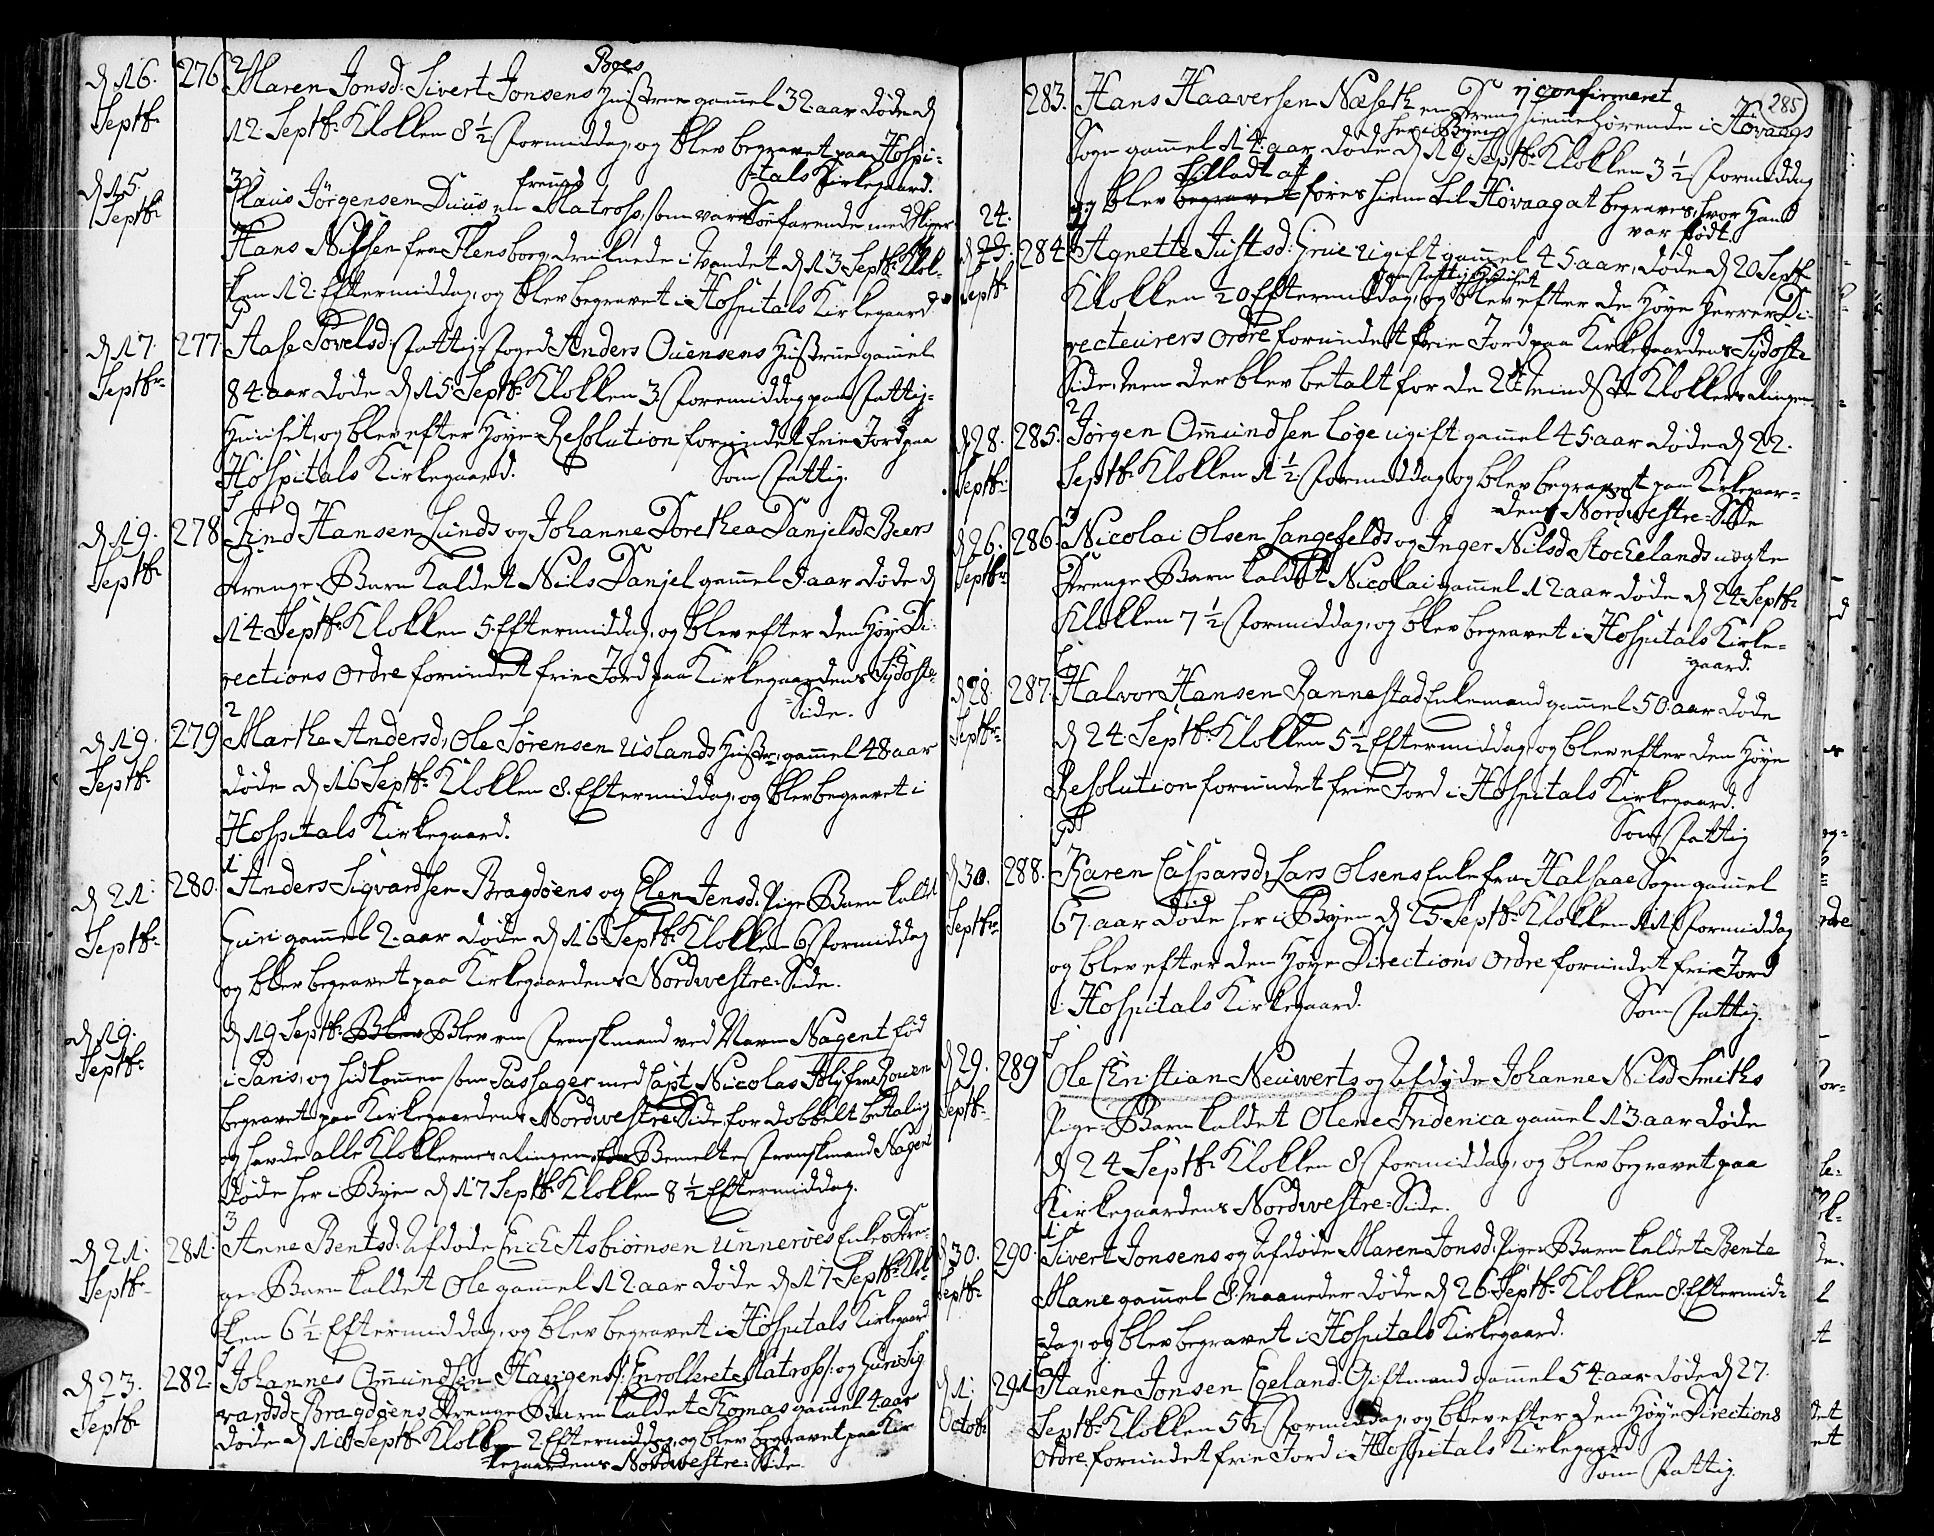 d 16. Septbr. 276 2 Maren Jonsd: Sivert Jonsens Boes Hustrue gamel 32 aar døde d
12. Septbr. Klokken 8½ Formiddag, og blev begravet paa Hospi=
=tals Kirkegaard.
d 15. Septbr 3 Claus Jörgensen Duus en fremd Matros, som var Söefarende med Skiper
Hans Nissen fra Flensborg druknede i Vandet d 13 Septbr. Klok=
ken 12. Eftermiddag, og blev begravet i Hospitals Kirkegaard
d 17. Septbr. 277 Aase Povelsd: Fattig Foged Anders Ouensens Hustrue gamel
84 aar døde d 15 Septbr. Klokken 3 Formiddag paa Fattig-
Huuset, og blev efter Høye Resolution forundet frie Jord paa
Hospitals Kirkegaard. Som Fattig.
d 19. Septbr 278 Find Hansen Lunds og Johanne Dorethea Danjelsd Beers
Drenge Barn kaldet Nils Danjel gamel 5 aar døde d
14 Septbr. Klokken 5. Eftermiddag, og blev efter den Høye Di=
rections Ordre forundet frie Jord paa Kirkegaardens Sydoste
=Side.
d 19. Septbr. 279 2 Marthe Andersd, Ole Sørensen Uislands Hustr. gamel 48 aar
døde d 16 Septbr. Klokken 8. Eftermiddag, og blev begravet i
Hospitals Kirkegaard.
d 21. Septbr. 280. 1 Anders Sigvardsen Bragdøens og Elen Jensd. Pige Barn kaldt
Guri gamel 2. aar døde d 16 Septbr. Klokken 6 Formiddag
og blev begravet paa Kirkegaardens Nordwestre=Side.
d 19. Septbr. d 19 Septbr. Blev Blev en Franskmand ved Navn Nagent fød
i Paris, og hidkommen som Passager med Capt Nicolas fra Rouen
begravet paa Kirkegaardens Nordwestre Side for dobbelt betaling
og havde alle Klokkernes Ringen Bemelte Franskmand Nagent
døde her i Byen d 17 Septbr. Klokken 8½ Eftermiddag.
d 21. Septbr. 281. 3 Anne Bentsd. Afdøde Erich Asbiørnsen Unnerøes Enkes Dren=
ge Barn kaldet Ole gamel 12 aar døde d 17 Septbr. Klok=
ken 6½ Eftermiddag, og blev begravet i Hospitals Kirkegaard
d 23. Septbr 282. Johannes Omundsen Haugens /: Enrollerete Matros/. og Guri Sig
vardsd Bragdøens Drenge Barn kaldet Thomas gamel 4 aar
døde d 18 Septbr Klokken 2 Eftermiddag, og blev begravet paa Kir
=kegaardens Nordwestre=Side.
285
283. Hans Haaversen Næseth en Dreng ej confirmeret hiemmehørende i Høvaags
Sogn gamel 14 aar døde her i Byen d 19 Septbr. Klokken 3½ Formiddag
og blev begravet tilladt at føres hiem til Høvaag at begraves, hvor Hand
var født.
24. d 23. Septbr 284 Agnette Justsd: Grue ugift gamel 45 aar, døde d 20 Septbr
Klokken 10 Eftermiddag, og blev efter de Høye Herrer Di=
recteurers Ordre forundet frie Jord paa Kirkegaardens Sydoste
Side, men der blev betalt for de 2de mindste Klokkers Ringen.
d 28. Septbr. 285. 2 Jørgen Omundsen Løge ugift gamel 45 aar døde d 22.
Septbr. Klokken 1½ Formiddag og blev begravet paa Kirkegaar=
dens Nordwestre=Side
d 26. Septbr 286. 3 Nicolai Olsen Langefelds og Inger Nilsd Stockelands uægte
Drenge Barn kaldet Nicolai gamel 12 aar døde d 24 Septbr
Klokken 7½ Formiddag, og blev begravet i Hospitals Kirke=
=gaard.
d 28. Septbr. 287. Halvor Hansen Rannestad Enkemand gamel 50 aar døde
d 24 Septbr. Klokken 5½ Eftermiddag, og blev efter den Høye
Resolution forundet frie Jord i Hospitals Kirkegaard.
Som Fattig
d 30. Septbr. 288. Karen Caspersd, Lars Olsens Enke fra Halsaae Sogn gamel
67. aar døde her i Byen d 25 Septbr. Klokken 11 Formiddag
og blev efter den Høye Directions Ordre forundet frie Jord
i Hospitals Kirkegaard. Som Fattig.
d 29. Septbr. 289 Ole Christian Neuwerts og Afdøde Johanne Nilsd Smiths
Pige=Barn kaldet Olene Inderica gamel 13 aar døde
d 24 Septbr. Klokken 8 Formiddag, og blev begravet paa
Kirkegaardens Nordwestre=Side.
d 30. Septbr. 290. 1 Sivert Jonsens og Afdøde Maren Jonsd: Pige Barn kaldet Bente
Mane gamel 8. maaneder døde d 26 Septbr. Klokken 8. Eftermid=
=dag, og blev begravet i Hospitals Kirkegaard.
d 1. Octobr 291 Hanen Jonsen Egeland. Giftmand gamel 54 aar døde d 27.
Septbr. Klokken 5½ Formiddag, og blev efter den Høye Directions
Ordre forundet frie Jord i Hospitals Kirkegaard
Som Fattig.